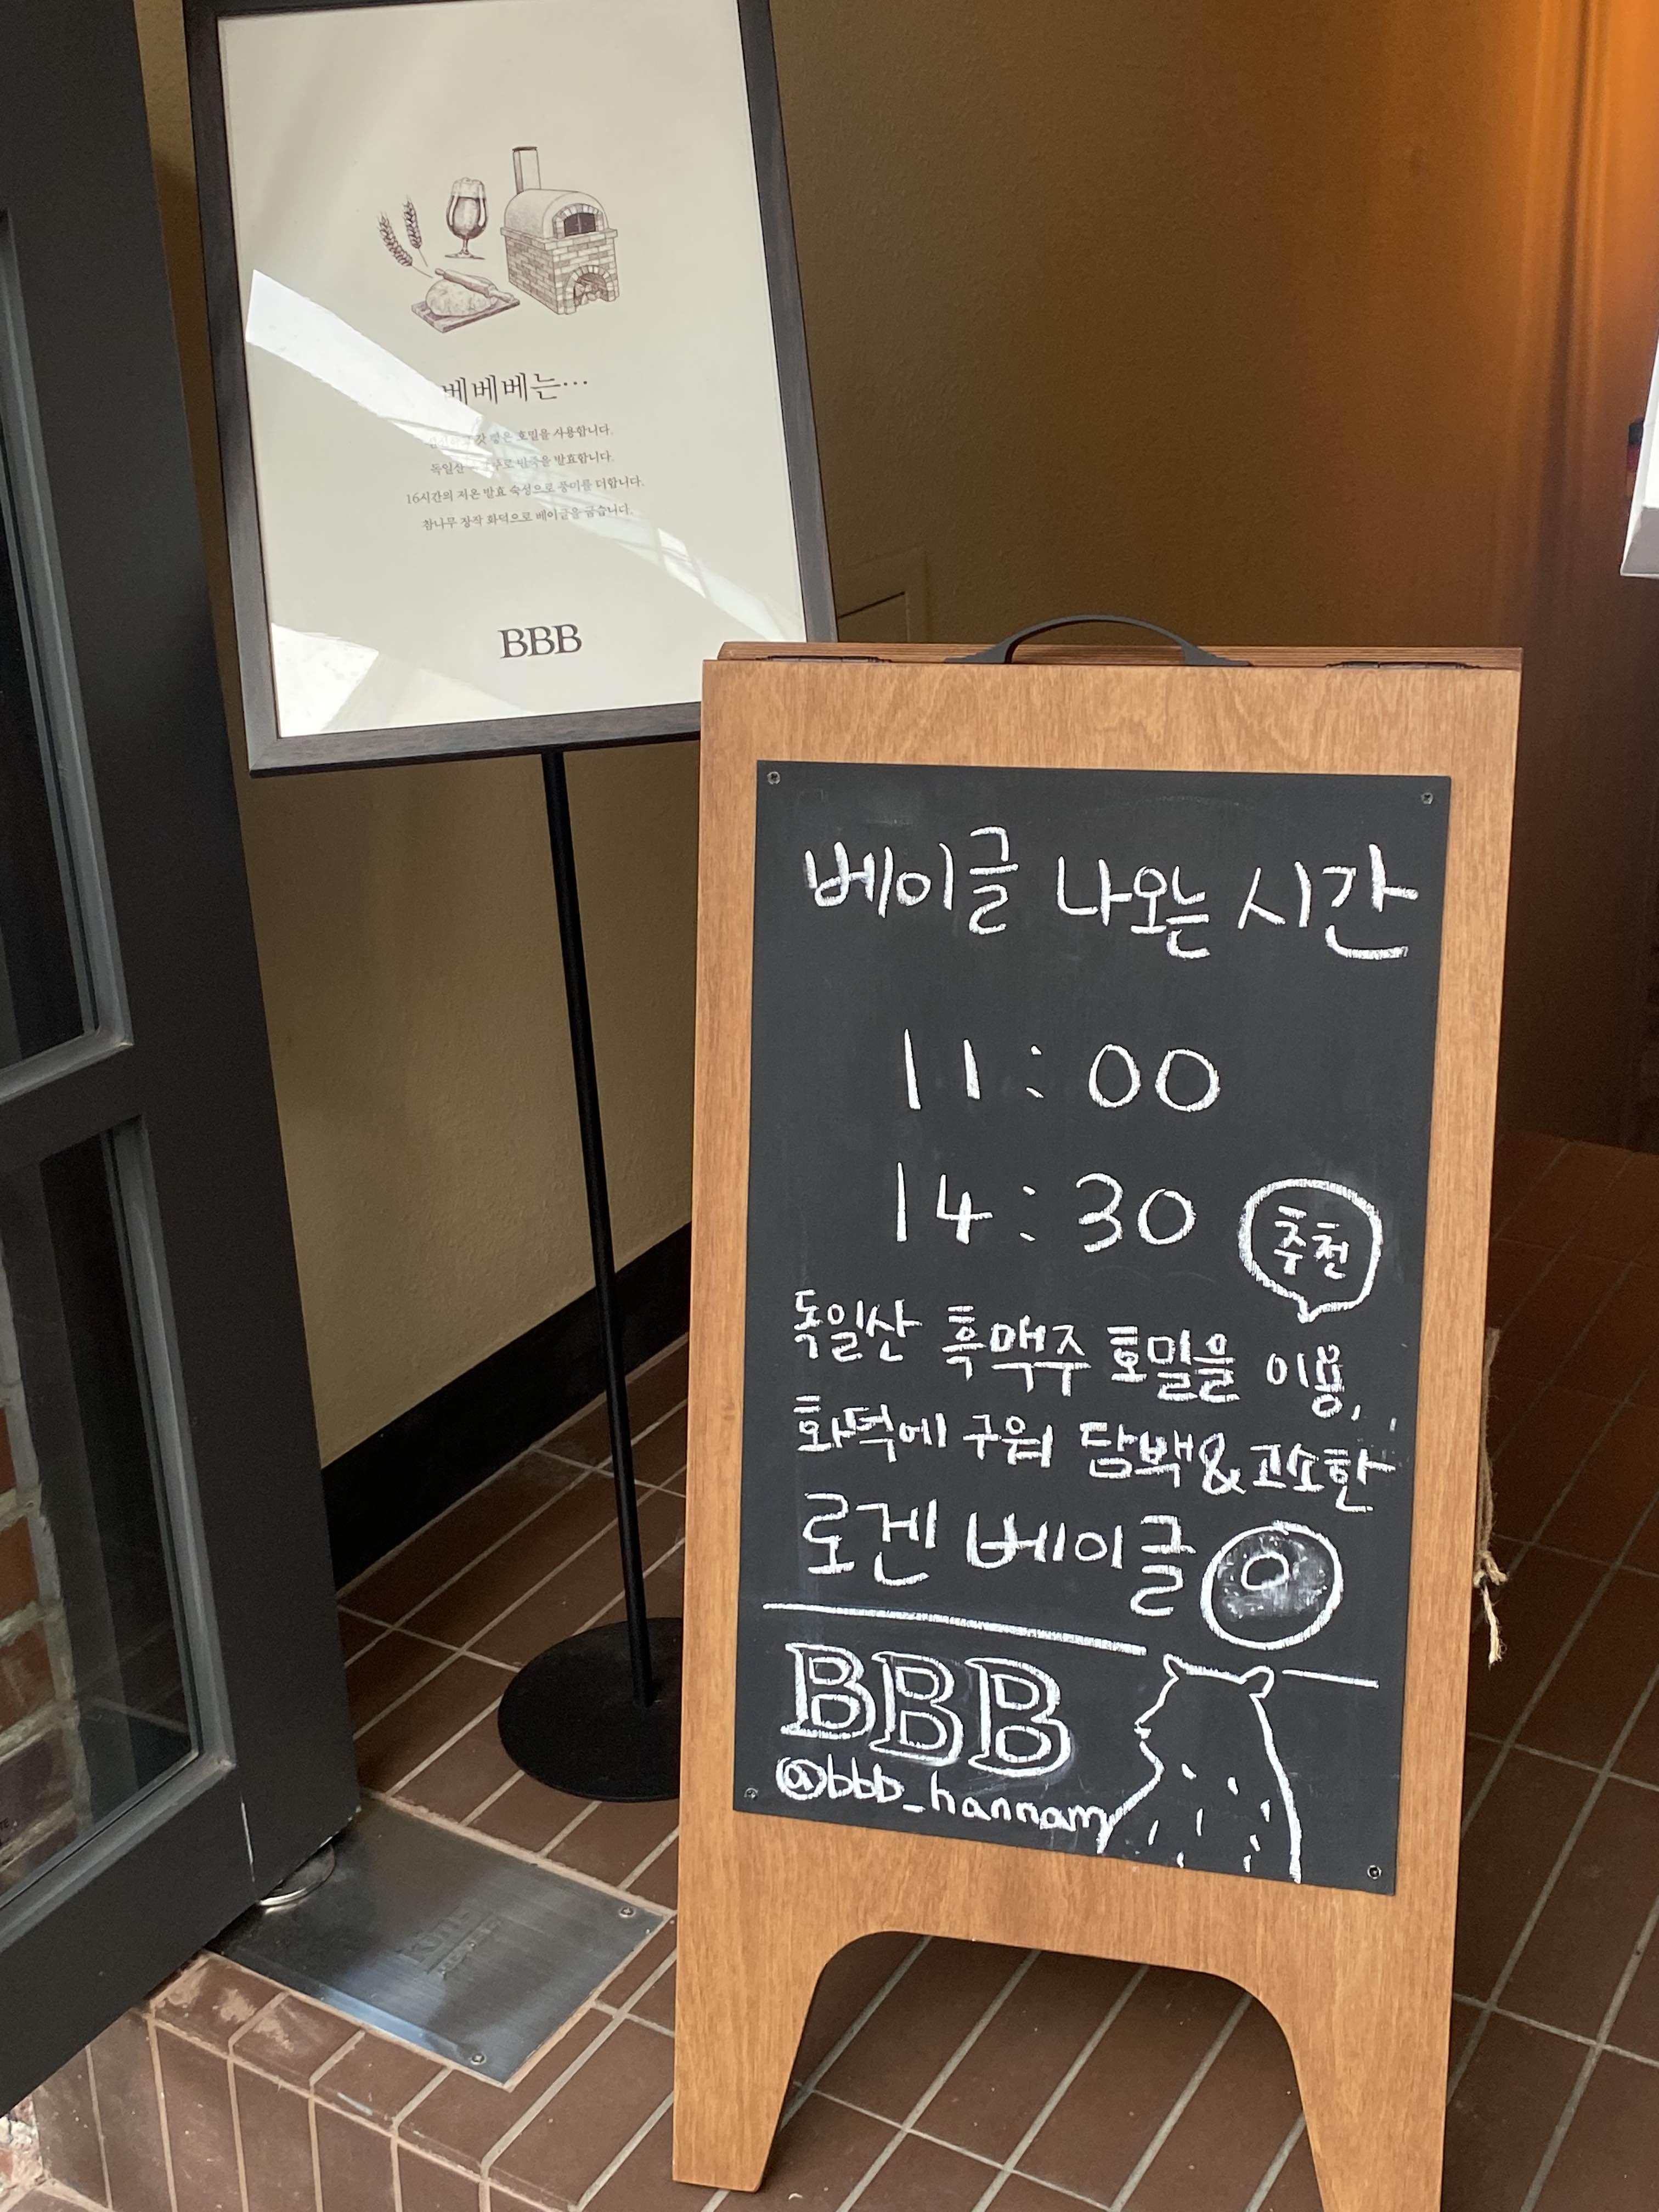 베베베는...
갓 빻은 호밀을 사용합니다.
독일산 반죽을 발효합니다.
16시간의 저온 발효 숙성으로 풍미를 더합니다.
참나무 장작 화덕으로 베이글을 굽습니다.
BBB
베이글 나오는 시간
11:00
14:30
추천
독일산 흑맥주 호밀을 이용,
화덕에 구워 담백&고소한
로겐 베이글
BBB
@bbb_hannam